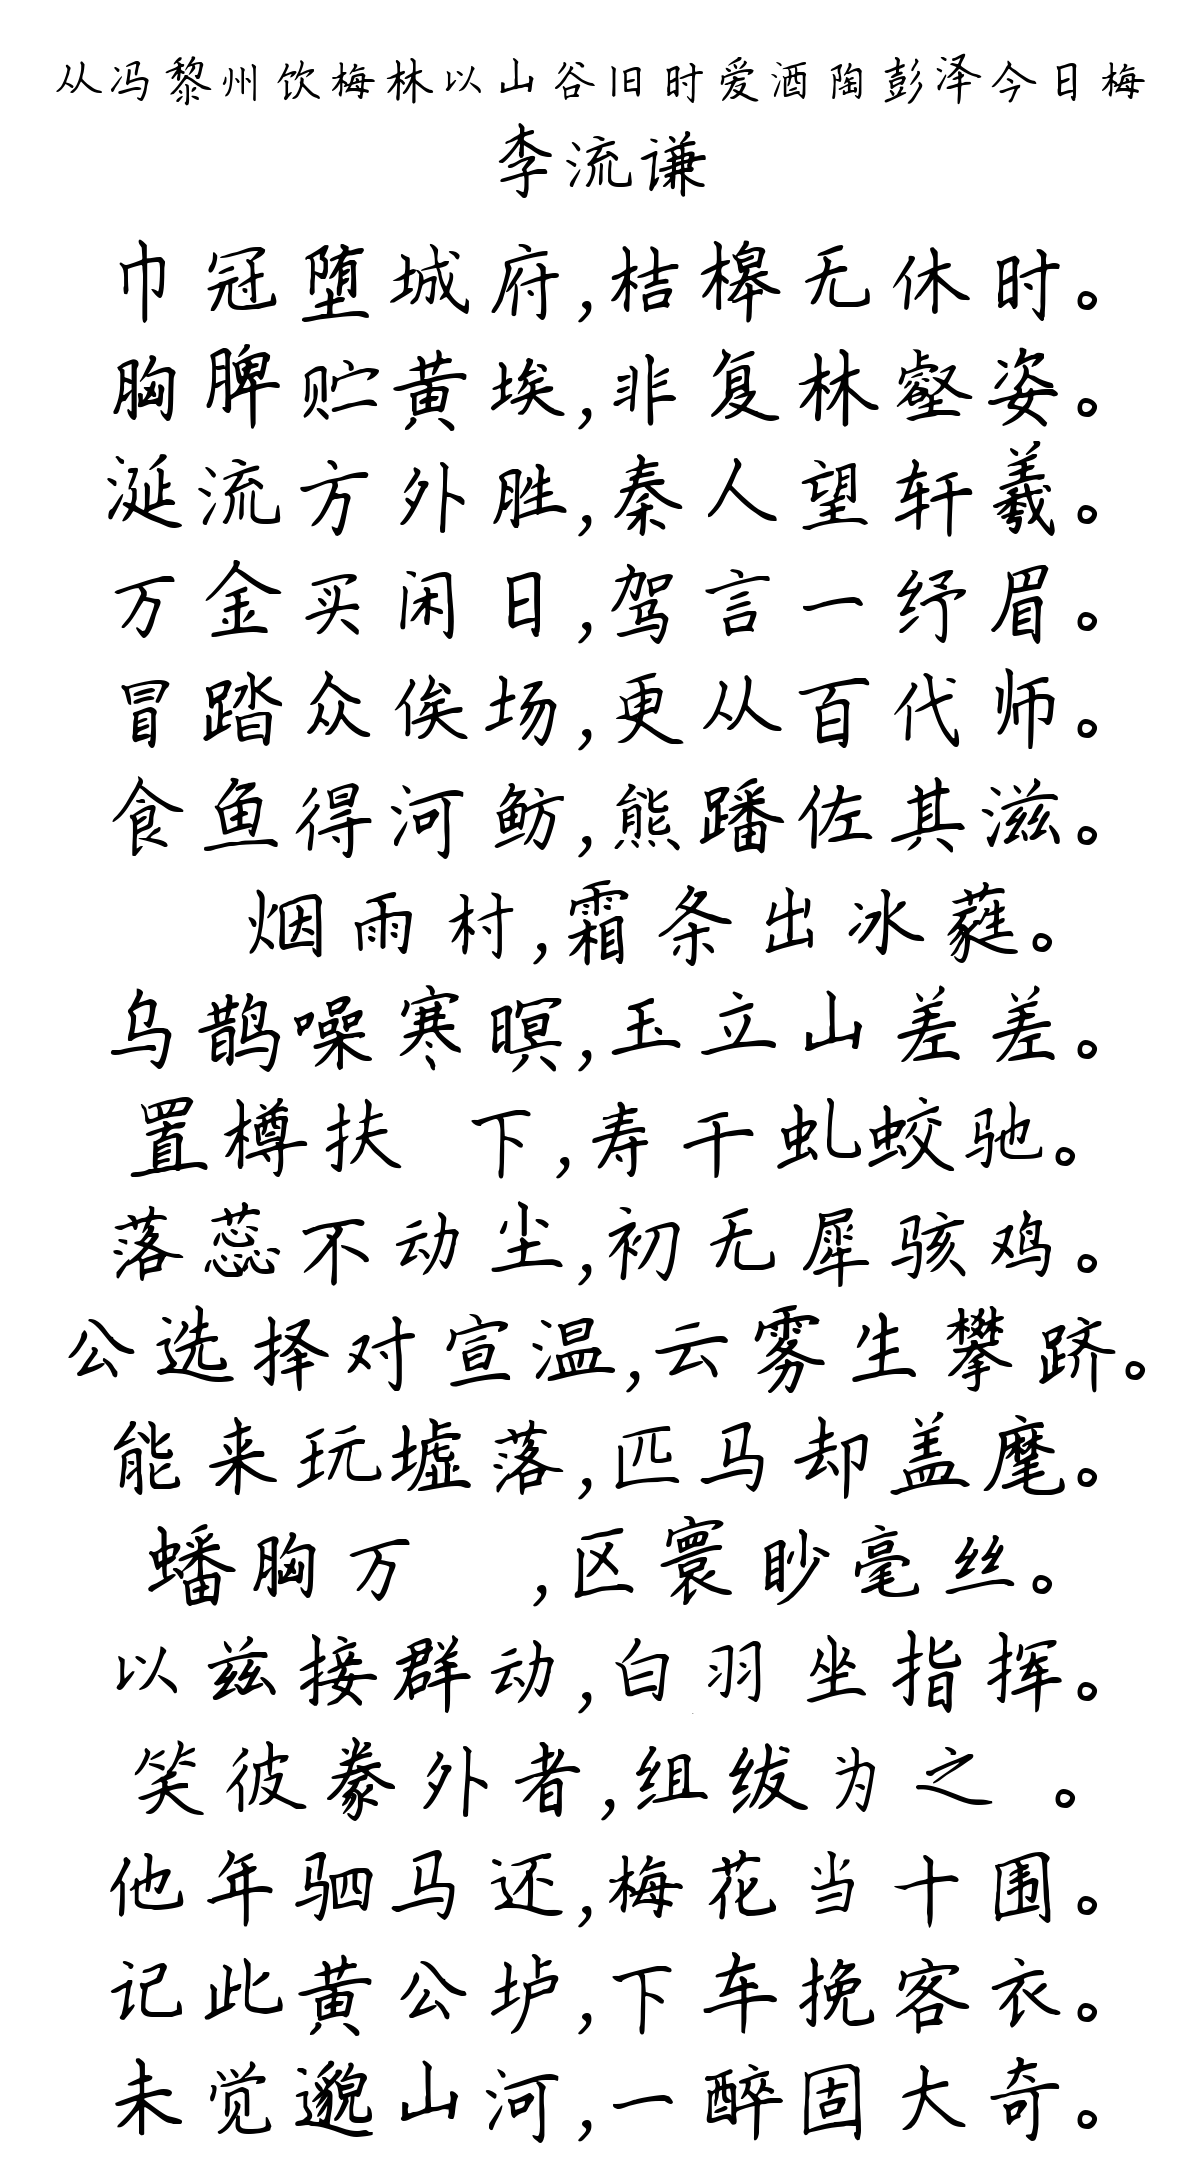 从冯黎州饮梅林以山谷旧时爱酒陶彭泽今日梅
李流谦
巾冠堕城府,桔槔无休时。
胸脾贮黄埃,非复林壑姿。
涎流方外胜,秦人望轩羲。
万金买闲日,驾言一纾眉。
冒踏众俟场,更从百代师。
食鱼得河鲂,熊蹯佐其滋。
烟雨村,霜条出冰蕤。
乌鹊噪寒暝,玉立山差差。
置樽扶 下,寿干虬蛟驰。
落蕊不动尘,初无犀骇鸡。
公选择对宣温,云雾生攀跻。
能来玩墟落,匹马却盖麾。
蟠胸万 ,区寰眇毫丝。
以兹接群动,白羽坐指挥。
笑彼豢外者,组绂为之 。
他年驷马还,梅花当十围。
记此黄公垆,下车挽客衣。
未觉邈山河,一醉固大奇。